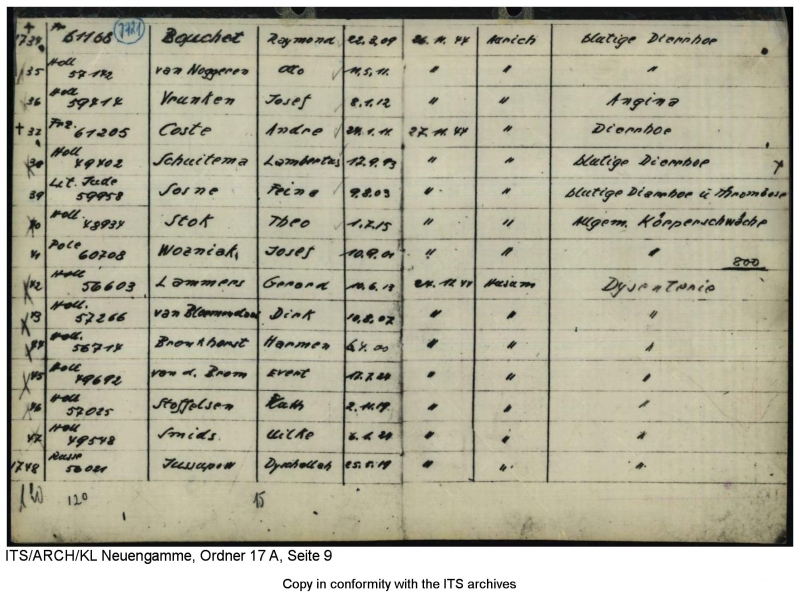 + 1734 Fr. 61168 7721 Bouchet Raymond 22.2.09 26.11.44 Aurich blutige Dierrhoe
35 Holl 57142 van Noggeren Otto 11.5.11. " " "
36 Holl 59414 Vrunken Josef 8.1.12 " " Angina
+ 37 Frz. 61205 Coste Andre 27.11.44 " Dierrhoe
38 Holl 49402 Schuitema Lambertus 12.9.93 " " blutige Dierrhoe
39 Lit. Jude 59958 Sosne Feina 9.8.03 " " blutige Diarrhoe u Thrombose
40 Holl. 43934 Stok Theo 1.7.15 " " Allgem. Körperschwäche
41 Pole 60708 Wozniak Josef " " "
800
42 Holl 56603 Lammers Gerard 10.6.13 Husum Dysenterie
43 Holl. 57266 Dirk 10.8.07 " " "
44 Holl. 56714 Bronkhorst Harmen " " "
45 Holl 49692 van d. Brom Evert 17.7.24 " " "
46 Holl 57025 Stoffelsen 2.11.19 " " "
47 Holl 49548 Smids Uilke " " "
1748 Russe Jussupow " " "
120 15
ITS/ARCH/KL Neuengamme, Ordner 17 A, Seite 9
Copy in conformity with the ITS archives